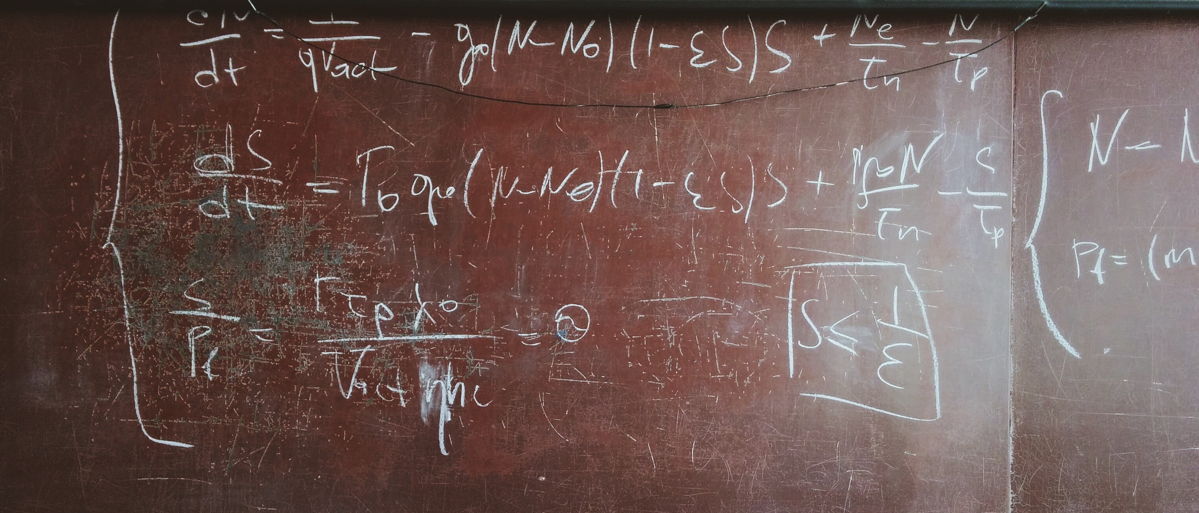 dN/dt = I/qVact - g₀(N-N₀)(1-εS)S + Ne/τn - N/τp
dS/dt = Γ₀g₀(N-N₀)(1-εS)S + β₀N/τn - S/τp
S/Pf = Γτpλ₀/Vactηhc = ϑ
S ≤ 1/ε
N - N
Pf = (m